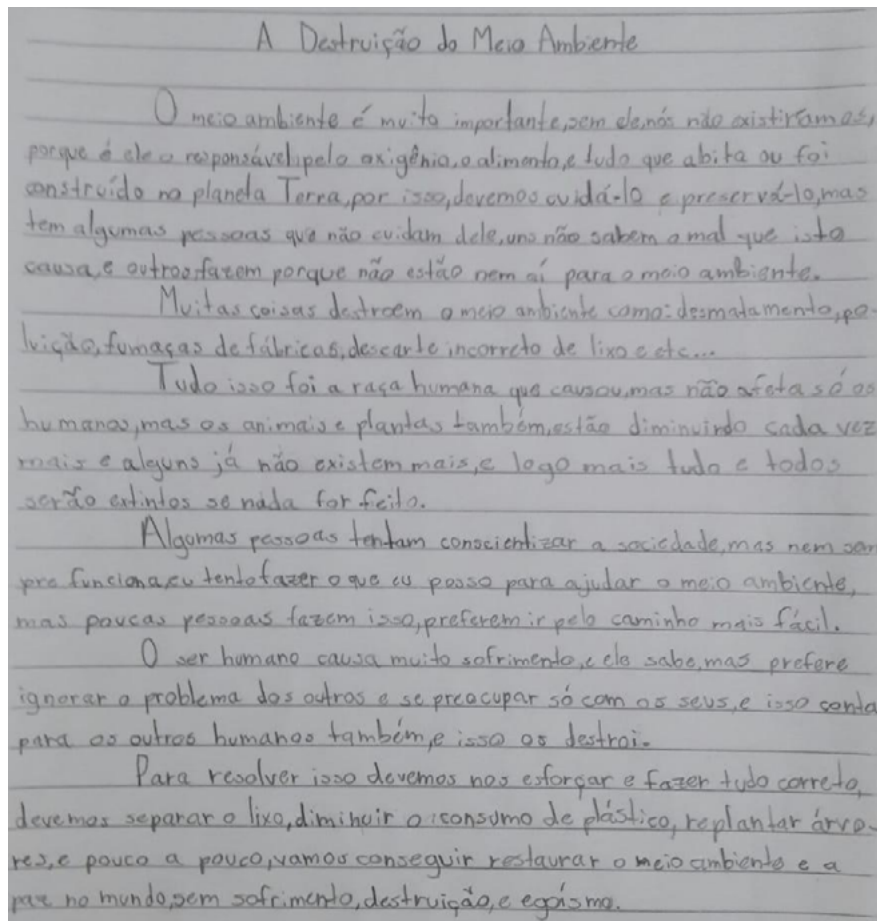 A Destruição do Meio Ambiente
O meio ambiente é muito importante, sem ele, nós não existiríamos,
porque é ele o responsável pelo oxigênio, o alimento, e tudo que abita ou foi
construído no planeta Terra, por isso, devemos cuidá-lo e preservá-lo, mas
tem algumas pessoas que não cuidam dele, uns não sabem o mal que isto
causa, e outros fazem porque não estão nem aí para o meio ambiente.
Muitas coisas destroem o meio ambiente como: desmatamento, po-
luição, fumaças de fábricas, descarte incorreto de lixo e etc...
Tudo isso foi a raça humana que causou, mas não afeta só os
humanos, mas os animais e plantas também, estão diminuindo cada vez
mais e alguns já não existem mais, e logo mais tudo e todos
serão extintos se nada for feito.
Algumas pessoas tentam conscientizar a sociedade, mas nem sem
pre funciona, eu tento fazer o que eu posso para ajudar o meio ambiente,
mas poucas pessoas fazem isso, preferem ir pelo caminho mais fácil.
O ser humano causa muito sofrimento, e ele sabe, mas prefere
ignorar o problema dos outros e se preocupar só com os seus, e isso conta
para os outros humanos também, e isso os destroi.
Para resolver isso devemos nos esforçar e fazer tudo correto,
devemos separar o lixo, diminuir o consumo de plástico, replantar árvo-
res, e pouco a pouco, vamos conseguir restaurar o meio ambiente e a
paz no mundo, sem sofrimento, destruição, e egoísmo.